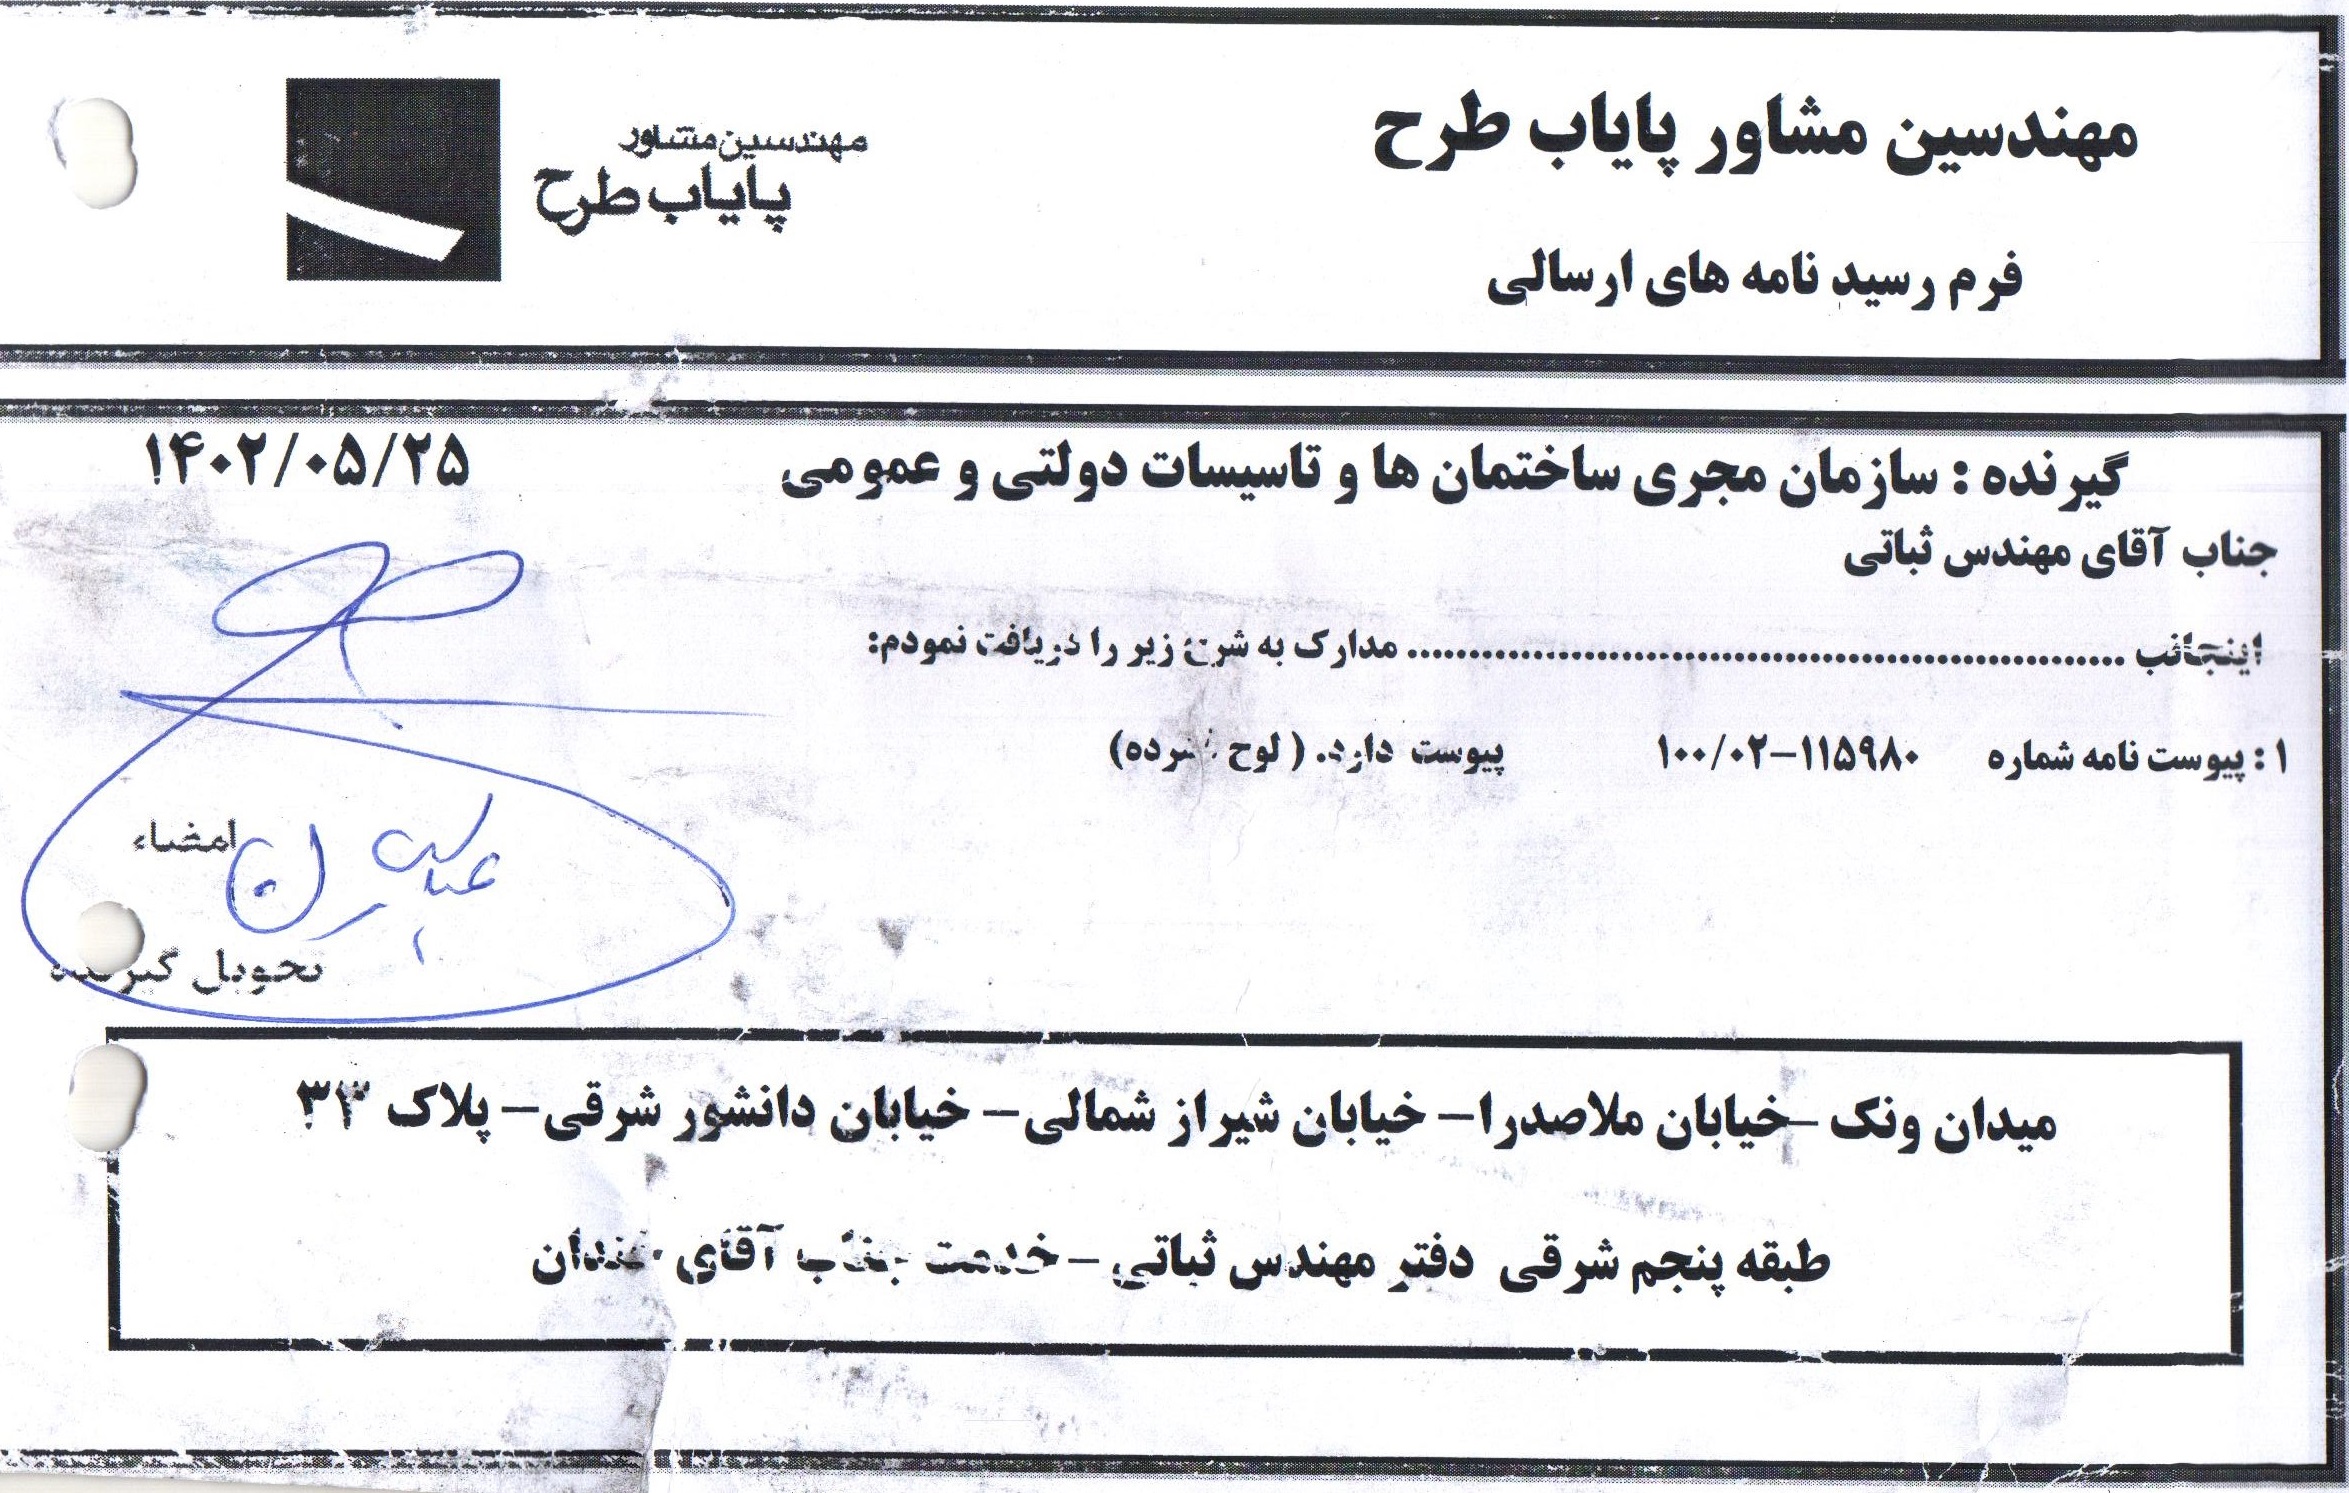 مهندسین مشاور پایاب طرح
مهندسین مشاور
پایاب طرح
فرم رسید نامه های ارسالی
گیرنده : سازمان مجری ساختمان ها و تاسیسات دولتی و عمومی
۱۴۰۲/۰۵/۲۵
جناب آقای مهندس ثباتی
اینجانب ........................................................ مدارک به شرح زیر را دریافت نمودم:
۱ : پیوست نامه شماره ۱۰۰/۰۲-۱۱۵۹۸۰ پیوست دارد. ( لوح فشرده)
امضاء
تحویل گیرنده
میدان ونک -خیابان ملاصدرا- خیابان شیراز شمالی- خیابان دانشور شرقی- پلاک ۳۳
طبقه پنجم شرقی دفتر مهندس ثباتی - خدمت جناب آقای